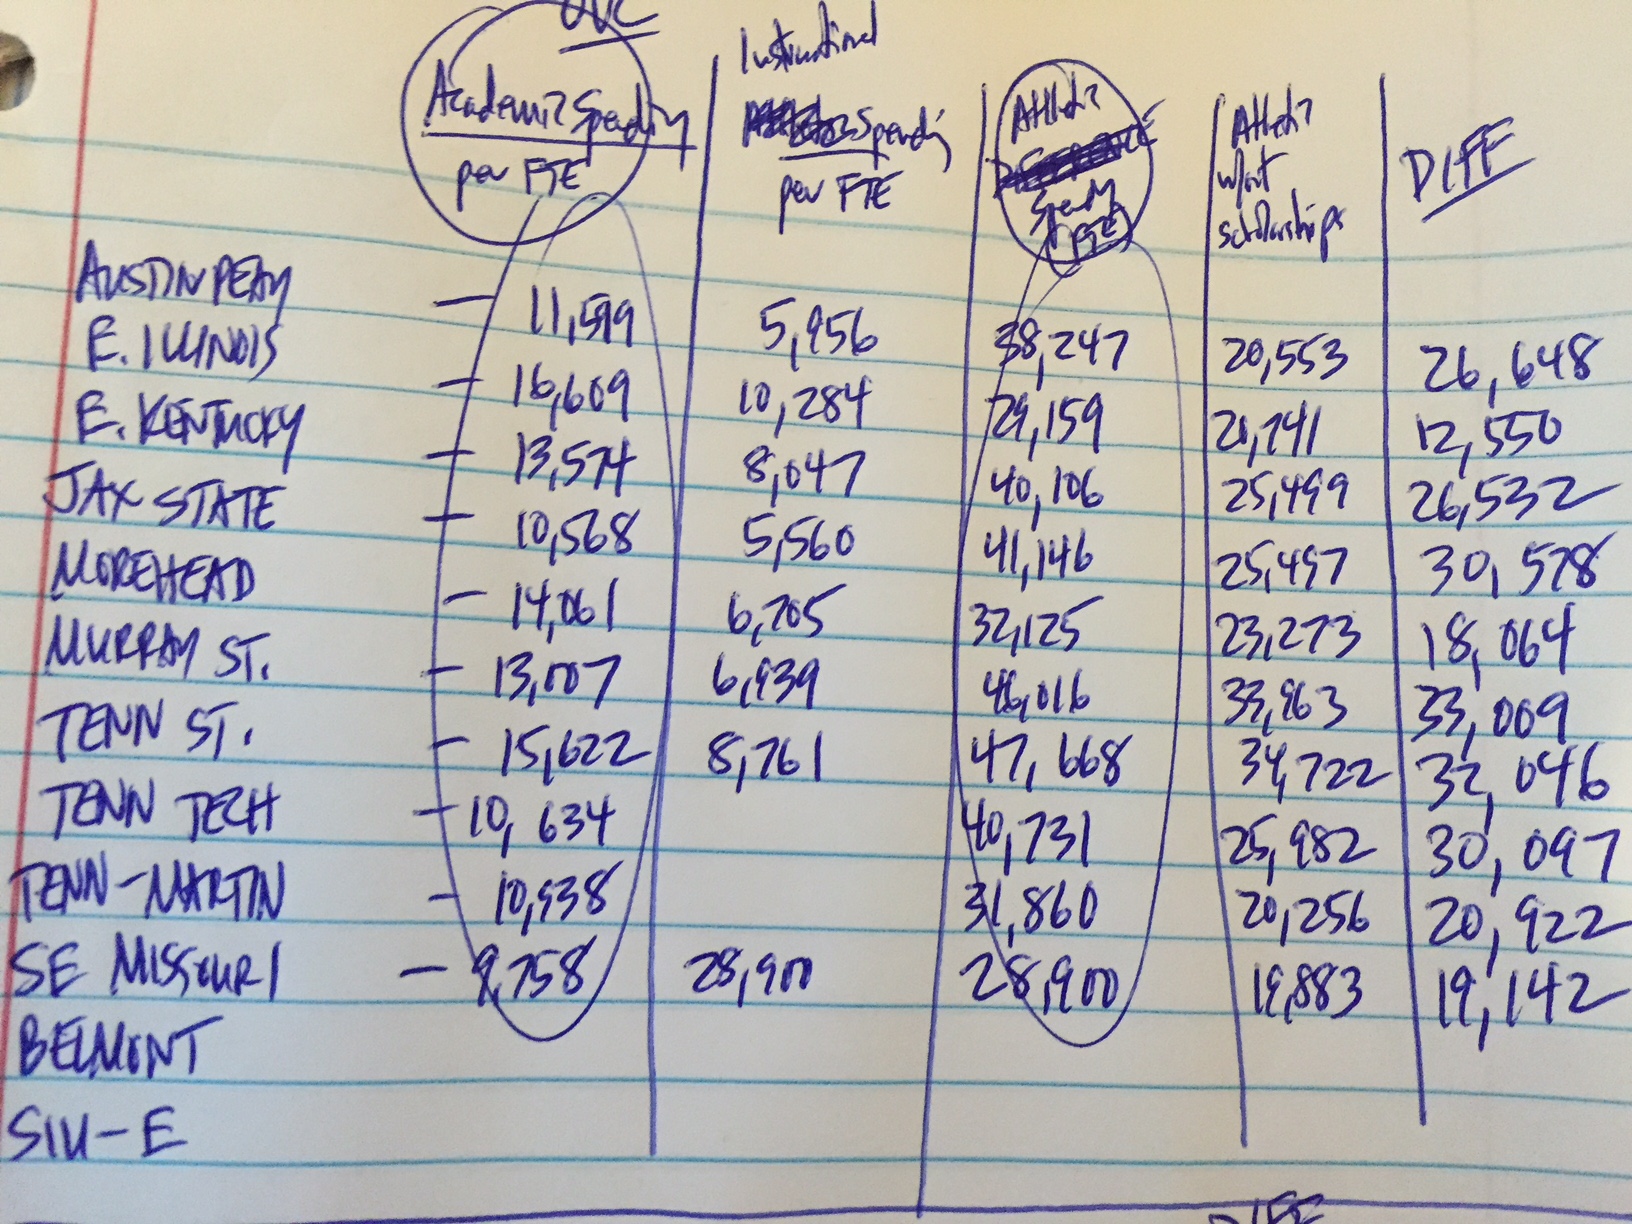 OVC
Academic Spending per FTE
Instructional Spending per FTE
Athletic Spending FTE
Athletic w/out scholarships
DIFF
AUSTIN PEAY — 11,599 5,956 38,247 20,553 26,648
E. ILLINOIS — 16,609 10,284 29,159 12,550
E. KENTUCKY — 13,574 8,047 40,106 25,499 26,532
JAX STATE — 10,568 5,560 41,146 25,457 30,578
MOREHEAD — 14,061 6,705 32,125 23,273 18,064
MURRAY ST. — 13,007 6,939 46,016 33,963 33,009
TENN ST. — 15,622 8,761 47,668 34,722 32,046
TENN TECH — 10,634 40,731 25,982 30,097
TENN-MARTIN — 10,938 31,860 20,256 20,922
SE MISSOURI — 9,758 28,900 28,900 19,883 19,142
BELMONT
SIU-E
DIFF